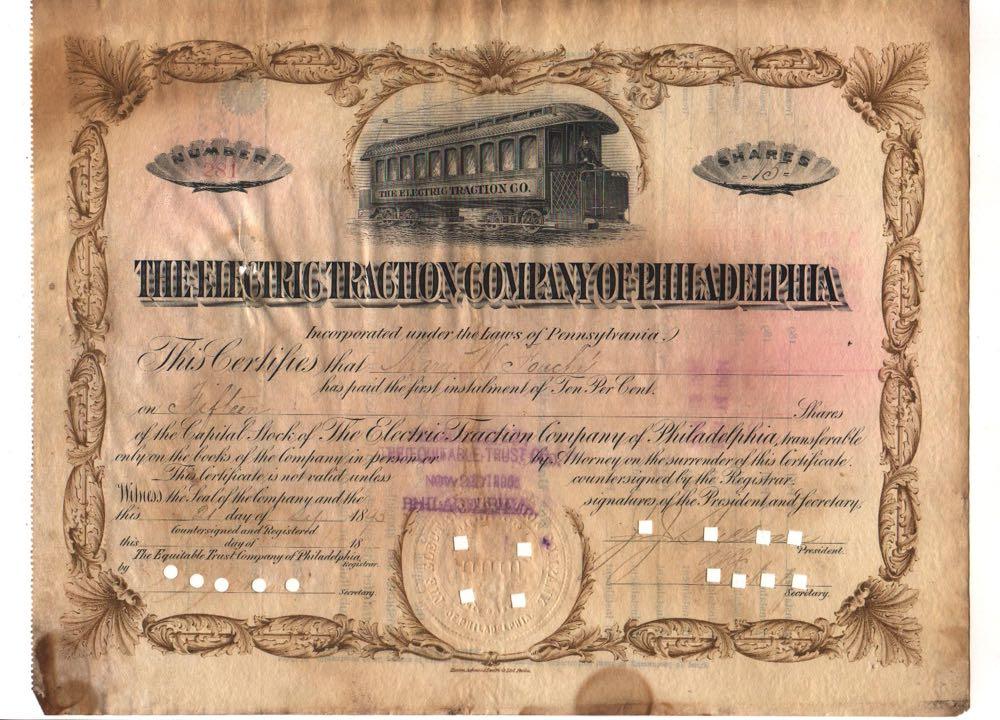 NUMBER
281
SHARES
-15-
THE ELECTRIC TRACTION CO.
THE ELECTRIC TRACTION COMPANY OF PHILADELPHIA
Incorporated under the Laws of Pennsylvania.
This Certifies that
has paid the first instalment of Ten Per Cent.
on Fifteen Shares
of the Capital Stock of The Electric Traction Company of Philadelphia, transferable
only on the books of the Company in person or by Attorney on the surrender of this Certificate.
This Certificate is not valid unless countersigned by the Registrar.
Witness the Seal of the Company and the signatures of the President and Secretary,
this day of 189
Countersigned and Registered
this day of 18
The Equitable Trust Company of Philadelphia,
Registrar.
by
Secretary.
President.
Secretary.
EQUITABLE TRUST
PHILADELPHIA
PHILADELPHIA